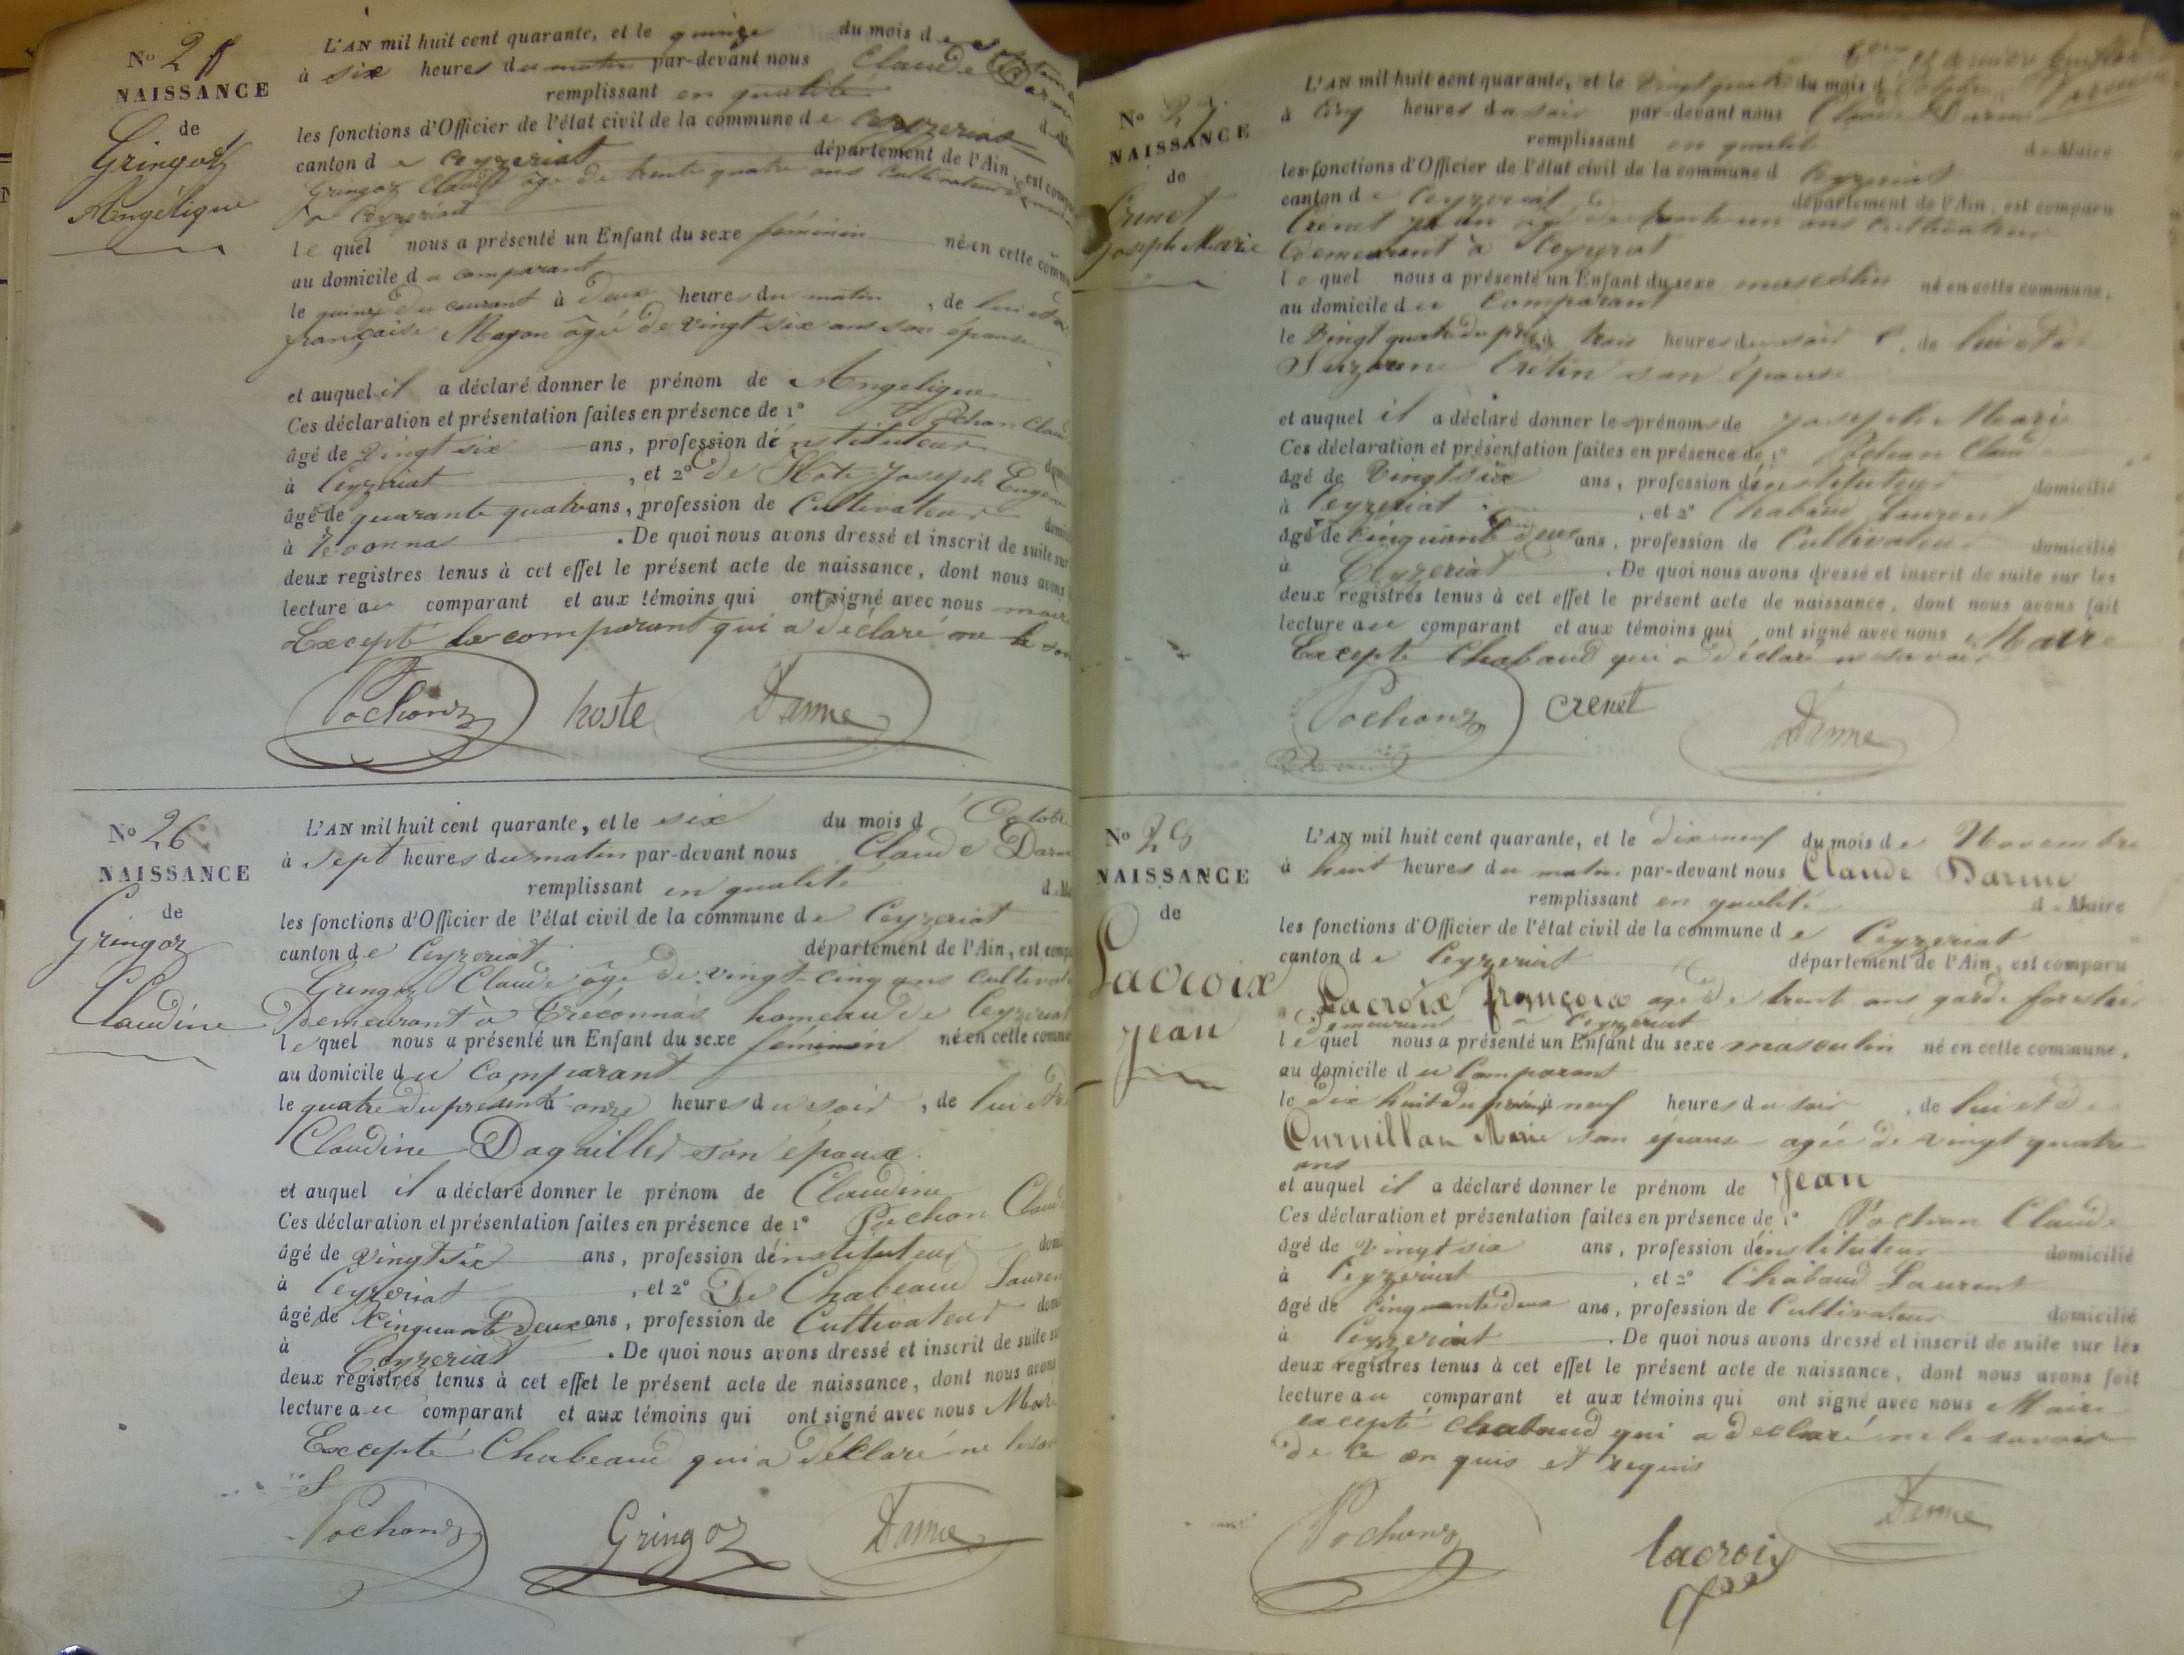 No 25
NAISSANCE
de
Gringoz
Angélique
L'AN mil huit cent quarante, et le quinze du mois de
à six heures du matin par-devant nous Claude Darme
remplissant en qualité
les fonctions d'Officier de l'état civil de la commune de Ceyzeriat
canton de Ceyzeriat département de l'Ain, est compa
Gringoz Claude âgé de trente quatre ans Cultivateur
à Ceyzeriat
le quel nous a présenté un Enfant du sexe féminin né en cette commu
au domicile du comparant
le quinze du courant à deux heures du matin, de lui et de
française Mayon âgée de vingt six ans son épouse
et auquel il a déclaré donner le prénom de Angelique
Ces déclaration et présentation faites en présence de 1° Pochon Claud
âgé de vingt six ans, profession d'instituteur
à Ceyzeriat, et 2° de Hote Joseph Eugene
âgé de quarante quatre ans, profession de Cultivateur domici
à . De quoi nous avons dressé et inscrit de suite sur
deux registres tenus à cet effet le présent acte de naissance, dont nous avons
lecture au comparant et aux témoins qui ont signé avec nous maire
Excepté le comparant qui a déclaré ne le
Pochon hoste Darme
No 26
NAISSANCE
de
Gringoz
Claudine
L'AN mil huit cent quarante, et le six du mois d'Octobre
à sept heures du matin par-devant nous Claude Darm
remplissant en qualité d. Ma
les fonctions d'Officier de l'état civil de la commune de Ceyzeriat
canton de Ceyzeriat département de l'Ain, est compa
Gringoz Claude âgé de vingt-cinq ans cultivate
Demeurant à Tréconnas hameau de Ceyzeriat
le quel nous a présenté un Enfant du sexe féminin né en cette commu
au domicile du Comparant
le quatre du présent à onze heures du soir, de lui et de
Claudine Dagaillier son épouse
et auquel il a déclaré donner le prénom de Claudine
Ces déclaration et présentation faites en présence de 1° Pochon Claud
âgé de vingt six ans, profession d'instituteur domi
à Ceyzeriat, et 2° De Chabeaud Lauren
âgé de Cinquante deux ans, profession de Cultivateur domi
à Ceyzeriat. De quoi nous avons dressé et inscrit de suite su
deux registres tenus à cet effet le présent acte de naissance, dont nous avons
lecture au comparant et aux témoins qui ont signé avec nous Mair
Excepté Chabeaud qui a déclaré ne le sav
Pochon Gringoz Darme
No 27
NAISSANCE
de
Crenet
Joseph Marie
L'AN mil huit cent quarante, et le vingt quatre du mois d'Octobre
à cinq heures du soir par-devant nous Claude Darme
remplissant en qualité de Maire
les fonctions d'Officier de l'état civil de la commune d Ceyzeriat
canton de Ceyzeriat département de l'Ain, est comparu
Crenet Jean âgé de trente un ans cultivateur
Demeurant à Ceyzeriat
le quel nous a présenté un Enfant du sexe masculin né en cette commune,
au domicile du Comparant
le Vingt quatre du présent à trois heures du soir, de lui et de
Suzanne Crétin son épouse
et auquel il a déclaré donner les prénoms de Joseph Marie
Ces déclaration et présentation faites en présence de 1° Pochon Claude
âgé de vingt six ans, profession d'instituteur domicilié
à Ceyzeriat, et 2° Chabaud Laurent
âgé de Cinquante deux ans, profession de Cultivateur domicilié
à Ceyzeriat. De quoi nous avons dressé et inscrit de suite sur les
deux registres tenus à cet effet le présent acte de naissance, dont nous avons fait
lecture au comparant et aux témoins qui ont signé avec nous Maire
Excepté Chabaud qui a déclaré ne savoir
Pochon crenet Darme
No
NAISSANCE
de
Lacroix
Jean
L'AN mil huit cent quarante, et le dix neuf du mois de Novembre
à huit heures du matin par-devant nous Claude Darme
remplissant en qualité d. Maire
les fonctions d'Officier de l'état civil de la commune de Ceyzeriat
canton de Ceyzeriat département de l'Ain, est comparu
Lacroix françois agé de trente ans garde forestier
demeurant à Ceyzeriat
le quel nous a présenté un Enfant du sexe masculin né en cette commune,
au domicile du Comparant
le dix huit du présent à neuf heures du soir, de lui et de
Curnillon Marie son épouse agée de vingt quatre
ans
et auquel il a déclaré donner le prénom de Jean
Ces déclaration et présentation faites en présence de 1° Pochon Claude
âgé de vingt six ans, profession d'instituteur domicilié
à Ceyzeriat, et 2° Chabaud Laurent
âgé de Cinquante deux ans, profession de Cultivateur domicilié
à Ceyzeriat. De quoi nous avons dressé et inscrit de suite sur les
deux registres tenus à cet effet le présent acte de naissance, dont nous avons fait
lecture au comparant et aux témoins qui ont signé avec nous Maire
excepté Chabaud qui a déclaré ne le savoir
de ce en quis et requis
Pochon lacroix Darme